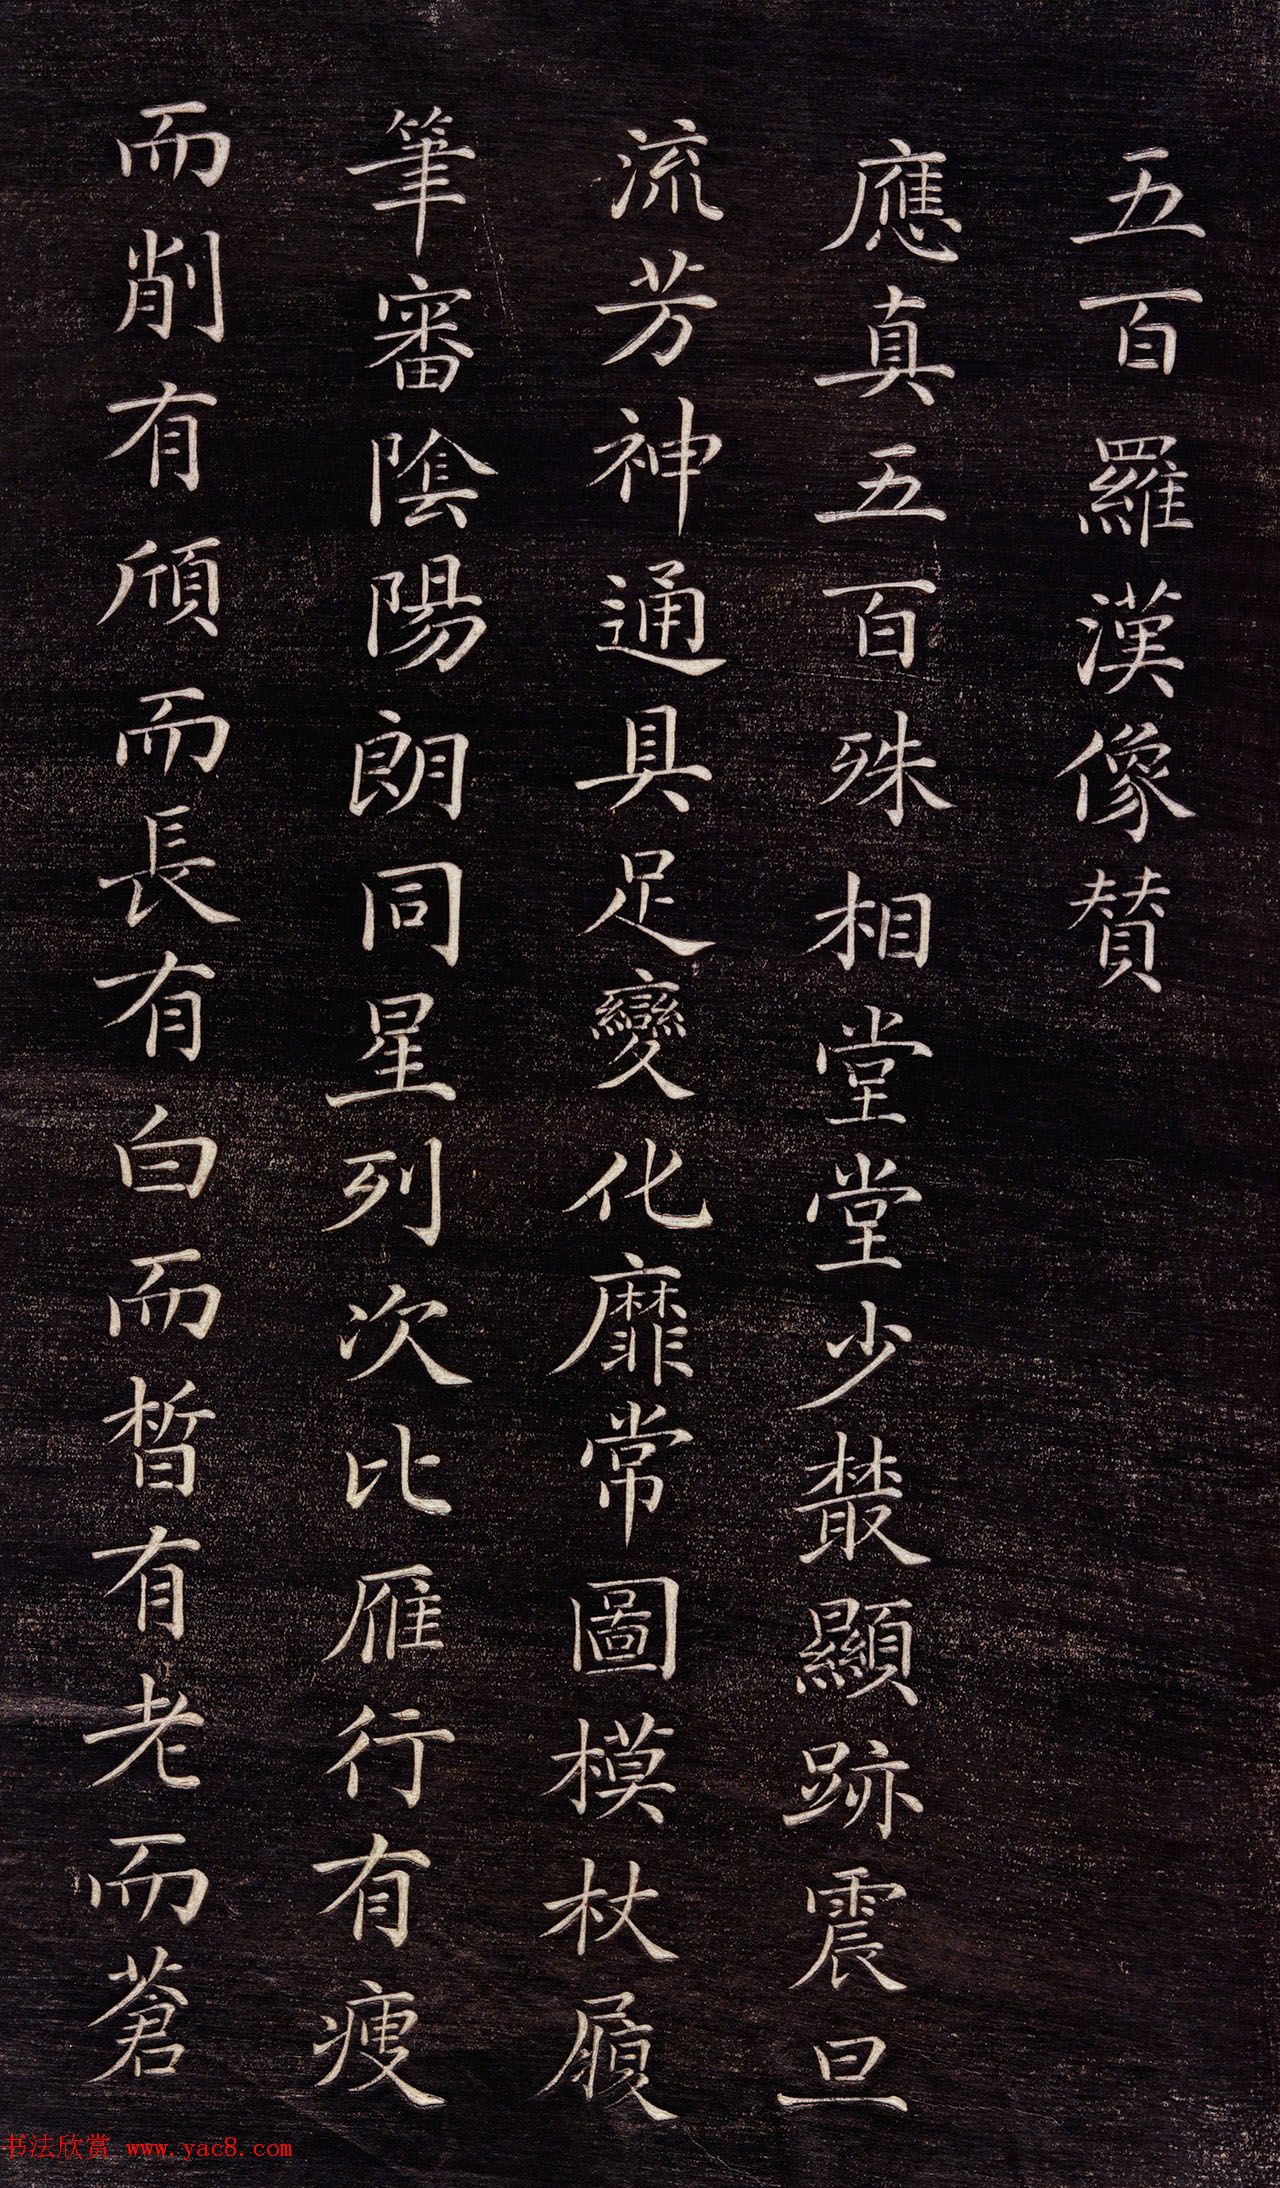 五百羅漢像贊
應真五百殊相堂堂少叢顯跡震旦
流芳神通具足變化靡常圖模杖履
筆審陰陽朗同星列次比雁行有瘦
而削有頎而長有白而皙有老而蒼
书法欣赏 www.yac8.com